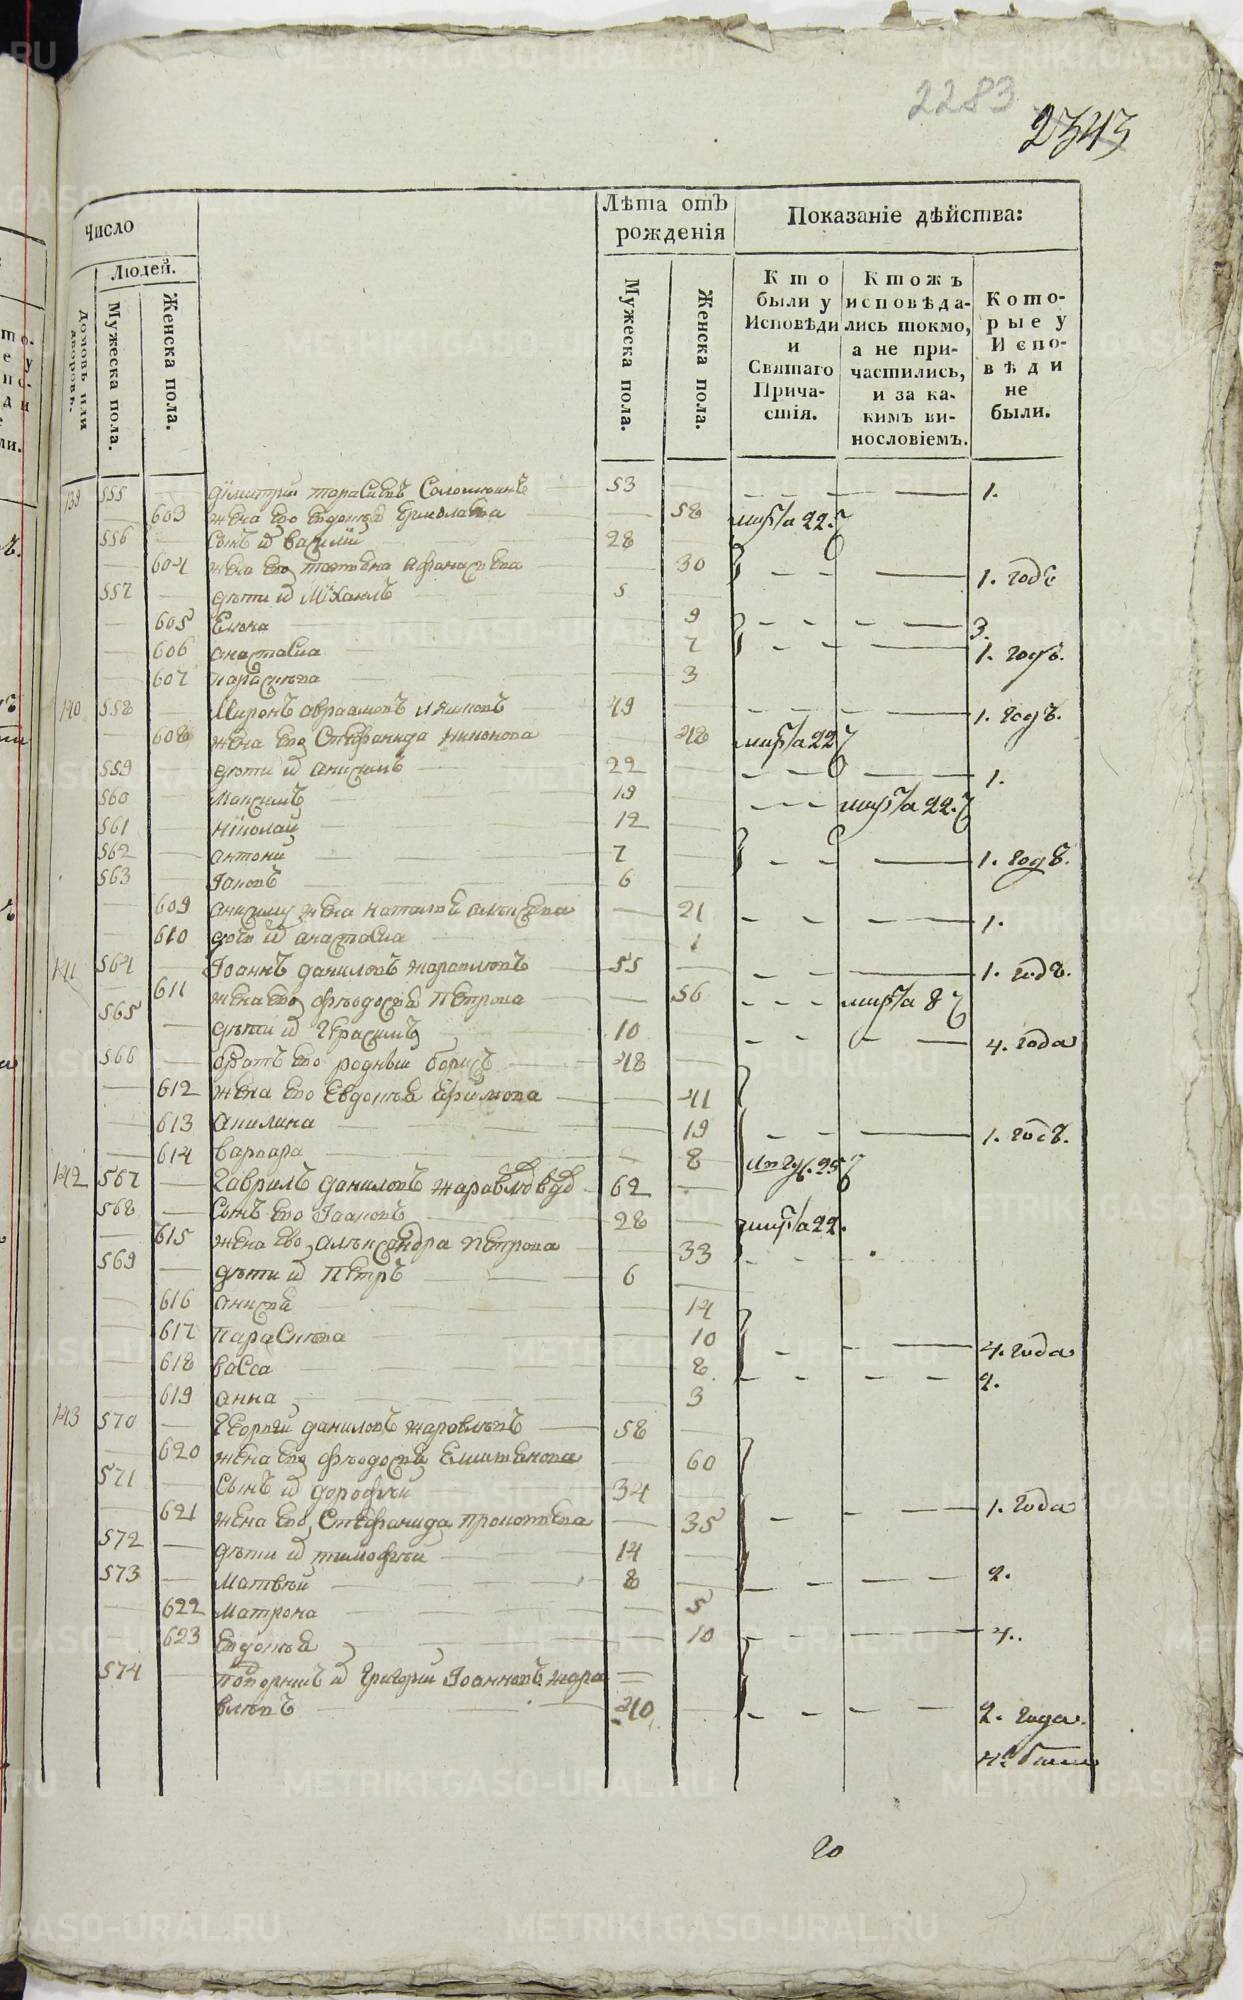 2283
2343
Число
Людей.
Домовъ или дворовъ.
Мужеска пола.
Женска пола.
Лѣта отъ рожденія
Мужеска пола.
Женска пола.
Показаніе дѣйства:
Кто были у Исповѣди и Святаго Причастія.
Ктожъ исповѣдались токмо, а не причастились, и за какимъ винословіемъ.
Которые у Исповѣди не были.
139 555 Димитрий 53 1.
603 жена его 58 22.
556 сынъ василий 28
604 жена его 30 1. годъ
557 дѣти Михаилъ 5
605 Елена 9 3.
606 анастасиа 7 1. годъ.
607 параскева 3
140 558 Миронъ авраамовъ 49 1. годъ.
608 жена его Стефанида 48 22
559 дѣти анисимъ 22 1.
560 Максимъ 19 22.
561 Николай 12
562 антоний 7 1. годъ.
563 Іаковъ 6
609 анисиму жена наталиа алексеева 21 1.
610 анастасиа 1
141 564 Іоаннъ даниловъ жаравлевъ 55 1. годъ.
611 жена его феодосиа Петрова 56 8
565 дѣти Герасимъ 10 4. года
566 братъ его родный борисъ 48
612 жена его Евдокиа 41
613 акилина 19 1. годъ.
614 варвара 8 25
142 567 Гаврилъ даниловъ 62
568 сынъ его Іаковъ 28 22.
615 жена его александра Петрова 33
569 дѣти Петръ 6
616 14
617 параскева 10 4. года
618 васса 8 2.
619 анна 3
143 570 Георгий даниловъ жаравлевъ 58
620 жена его феодосиа 60
571 сынъ дорофей 34
621 жена его Стефанида 35 1. года
572 дѣти тимофей 14
573 Матвѣй 8 2.
622 Матрона 5
623 Евдокиа 10 4.
574 Григорий Іоанновъ жара
влевъ 40 2. года.
не были
20
METRIKI.GASO-URAL.RU